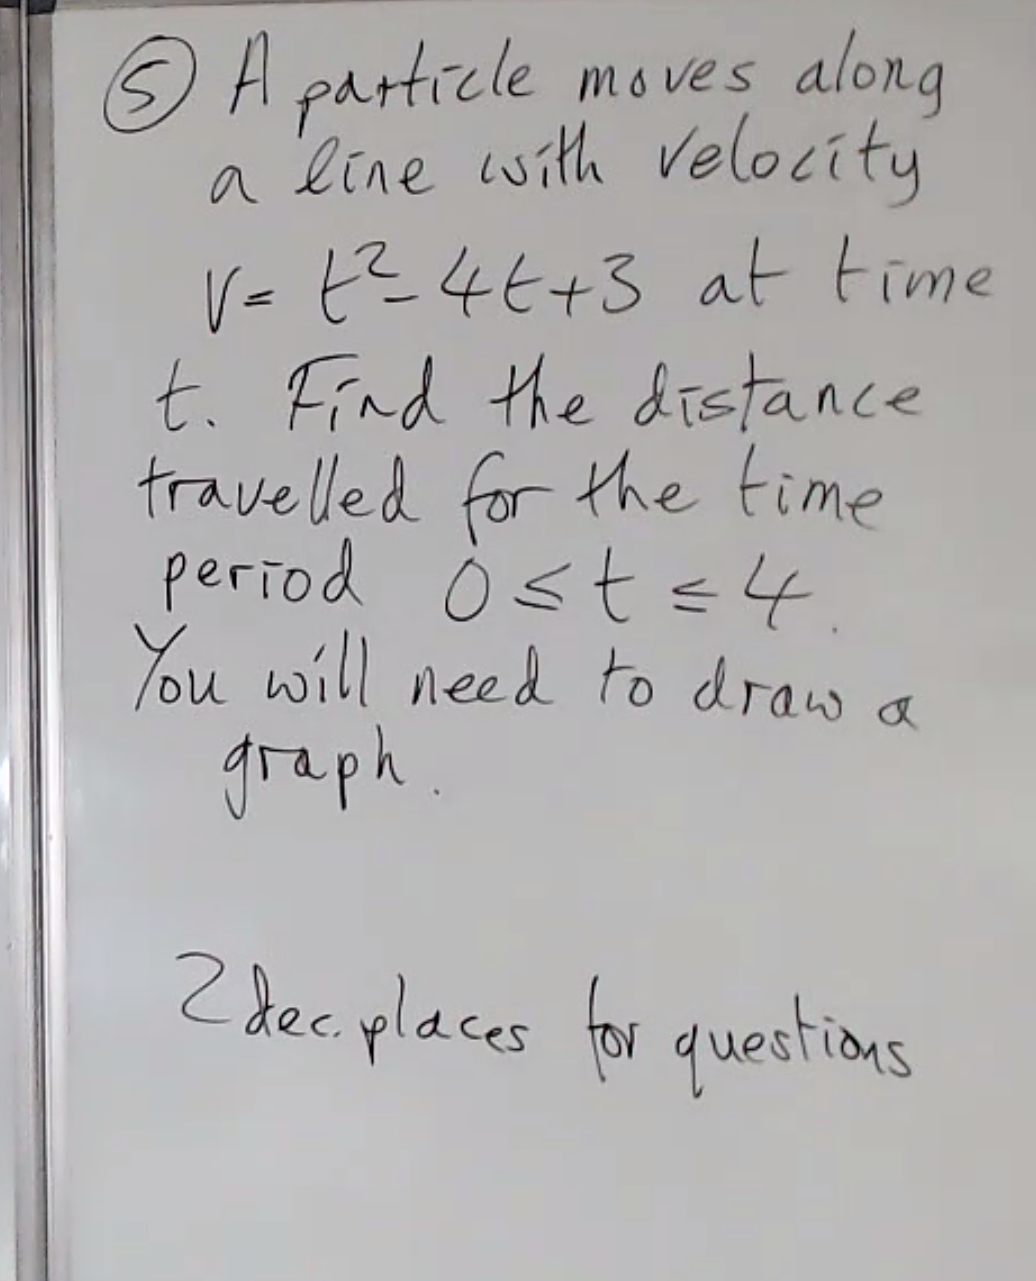 ⑤ A particle moves along
a line with velocity
v = t² - 4t + 3 at time
t. Find the distance
travelled for the time
period 0 ≤ t ≤ 4.
You will need to draw a
graph.
2 dec. places for questions